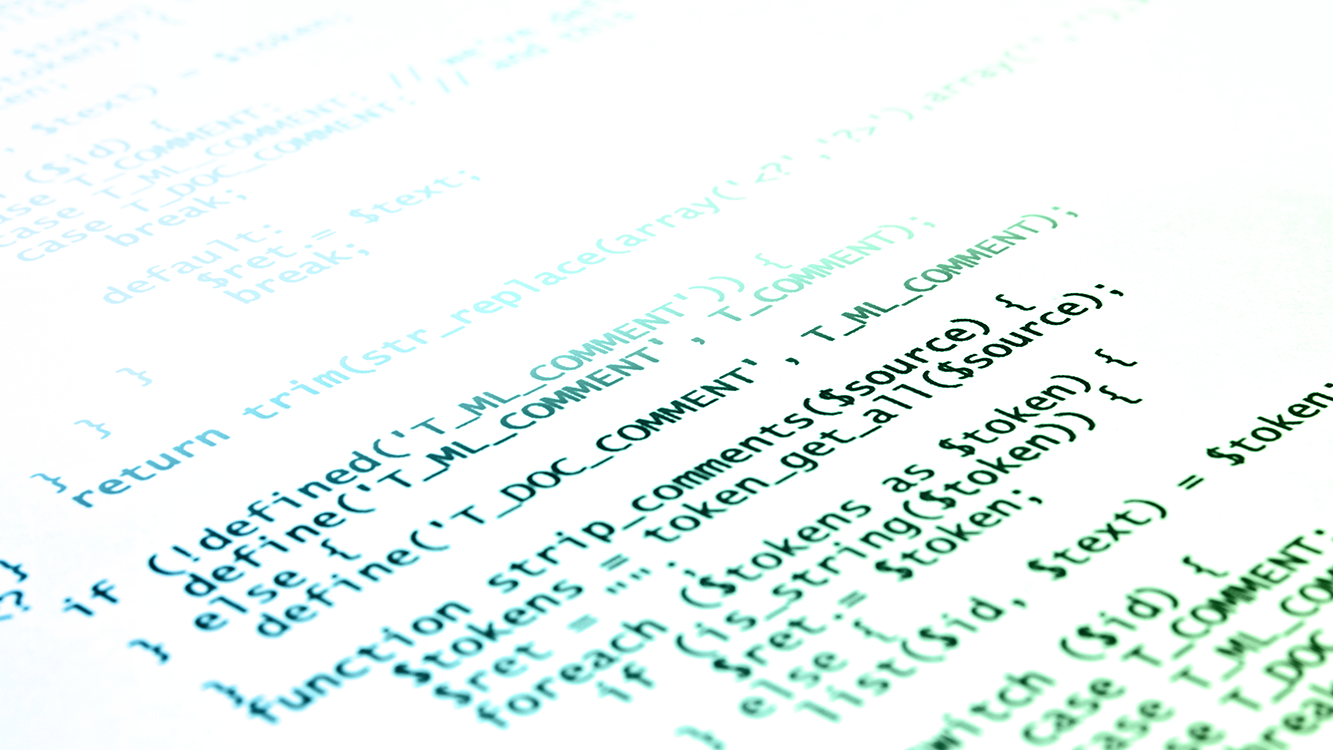 $text) = $token
($id) {
case T_COMMENT:
case T_ML_COMMENT: // we've
case T_DOC_COMMENT: // and
break;
default:
$ret .= $text;
break;
}
}
}
return trim(str_replace(array('<?','?>'),array('
}
?
if (!defined('T_ML_COMMENT')) {
define('T_ML_COMMENT', T_COMMENT);
} else {
define('T_DOC_COMMENT', T_ML_COMMENT);
}
function strip_comments($source) {
$tokens = token_get_all($source);
$ret = "";
foreach ($tokens as $token) {
if (is_string($token)) {
$ret.= $token;
} else {
list($id, $text) = $token;
switch ($id) {
case T_COMMENT:
case T_ML_COMM
case T_DOC
break